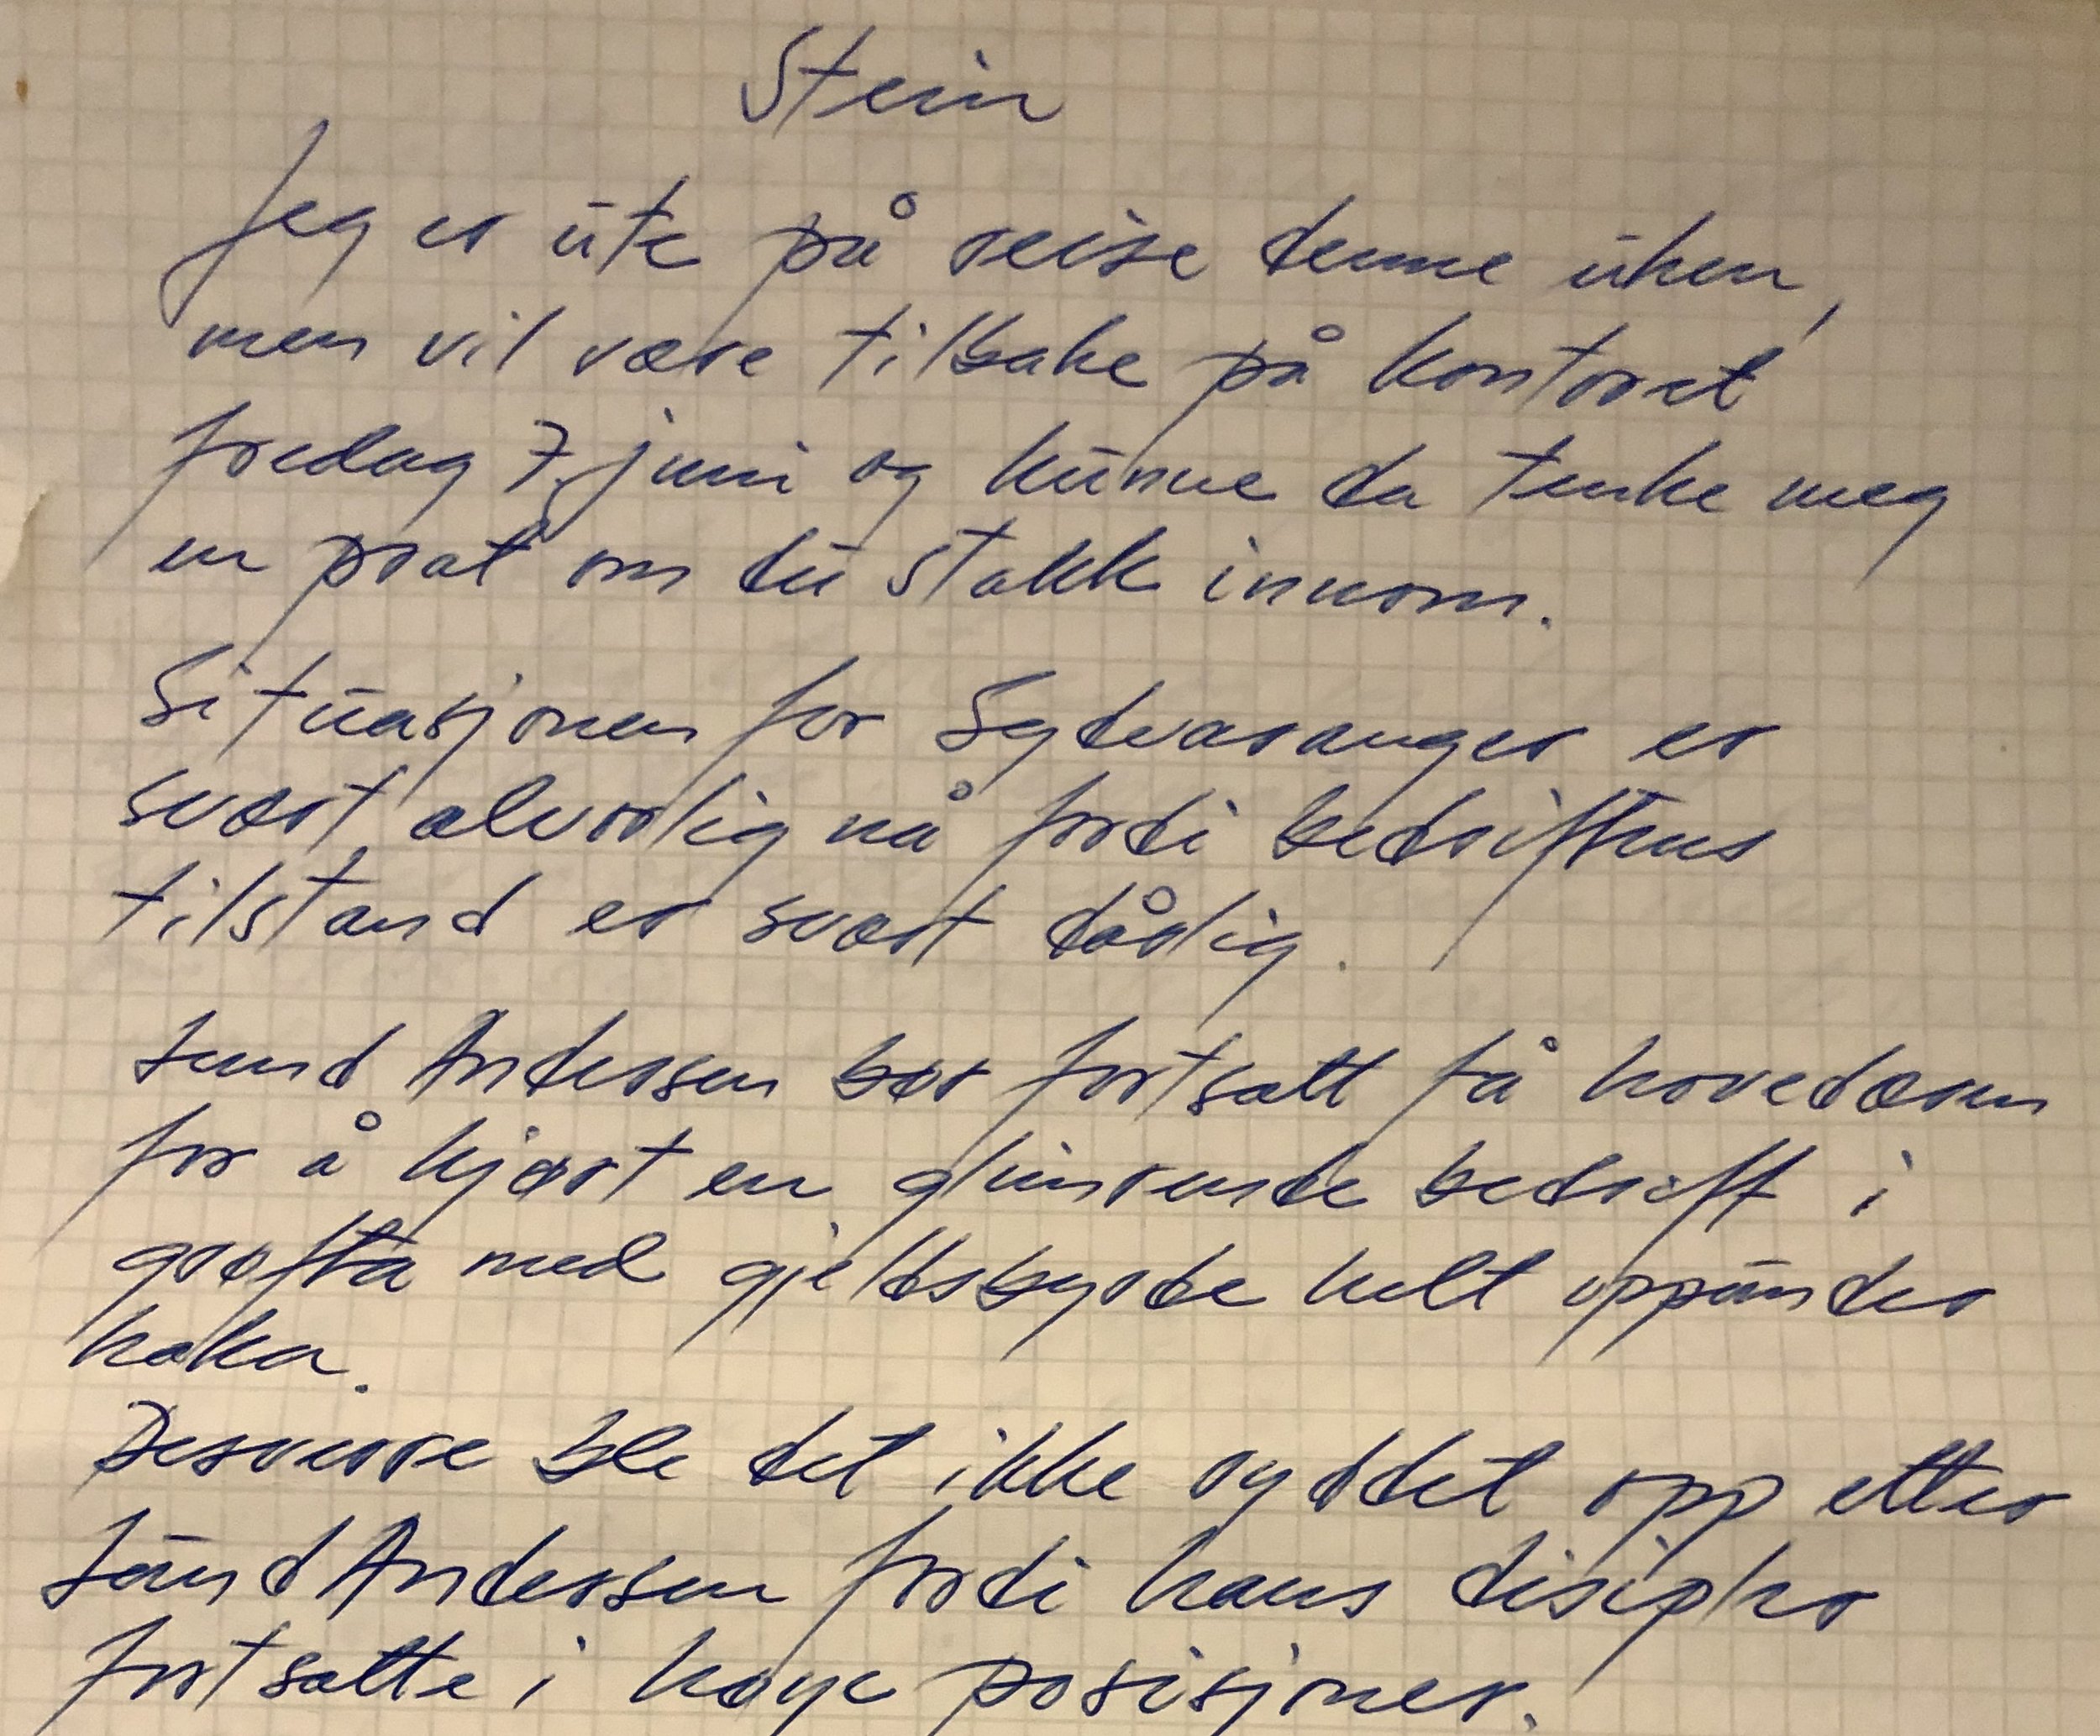 Stein
Jeg er ute på reise denne uken,
men vil være tilbake på kontoret
fredag 7. juni og kunne da tenke meg
en prat om du stakk innom.
Situasjonen for Sydvaranger er
svært alvorlig nå fordi bedriftens
tilstand er svært dårlig.
Lund Andersen bør fortsatt få hovedæren
for å kjørt en glimrende bedrift i
grøfta med gjeldsbyrde helt oppunder
haka.
Desverre ble det ikke ryddet opp etter
Lund Andersen fordi hans disipler
fortsatte i høye posisjoner.